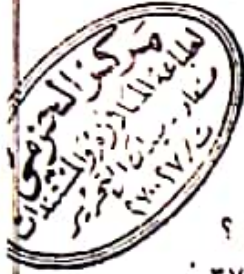 مركز الحزمي
لطباعة الملازم والمستندات
صنعاء - ميدان التحرير
ت/٢٧٠٠٢٧
؟